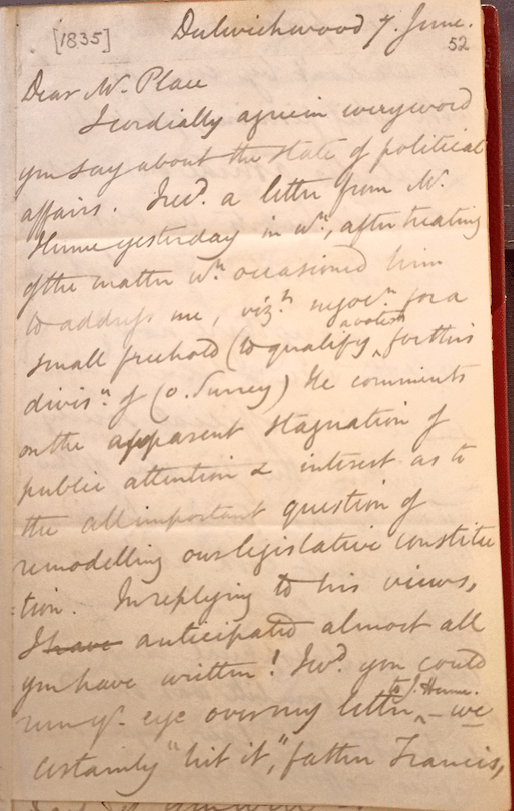 [1835]
Dulwichwood 7. June.
52
Dear Mr. Place
I cordially agree in every word
you say about the state of political
affairs. I recd. a letter from Mr.
Hume yesterday in wh., after treating
of the matter wh. occasioned him
to address me, vizt. negocn. for a
small freehold (to qualify ^ a voter for this
divisn. of Co. Surrey) He comments
on the apparent stagnation of
public attention & interest as to
the all important question of
remodelling our legislative constitu
:tion. In replying to his views,
I have anticipated almost all
you have written! I wd. you could
run yr. eye over my letter ^ to J. Hume. – we
certainly "hit it," father Francis,